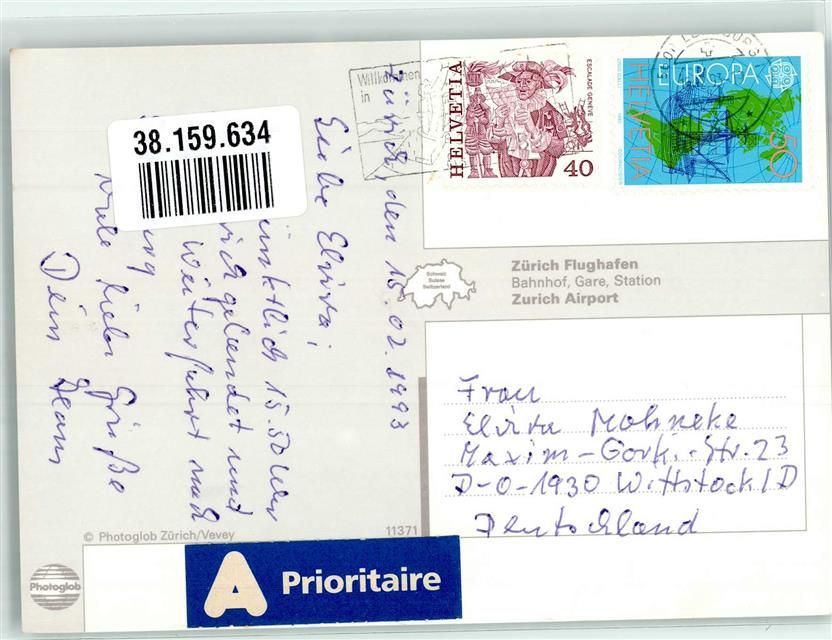 Zürich, den 15.02.1993
Liebe Elvira,
pünktlich 15.50 Uhr
gelandet und
Weiterfahrt nach
Viele liebe Grüße
Dein Hans
38.159.634
Willkommen
in
HELVETIA
ESCALADE GENEVE
40
EUROPA
HELVETIA
50
Schweiz
Suisse
Switzerland
Zürich Flughafen
Bahnhof, Gare, Station
Zurich Airport
Frau
Elvira Mohneke
Maxim-Gorki-Str. 23
D-O-1930 Wittstock/D
Deutschland
© Photoglob Zürich/Vevey
11371
Photoglob
A Prioritaire